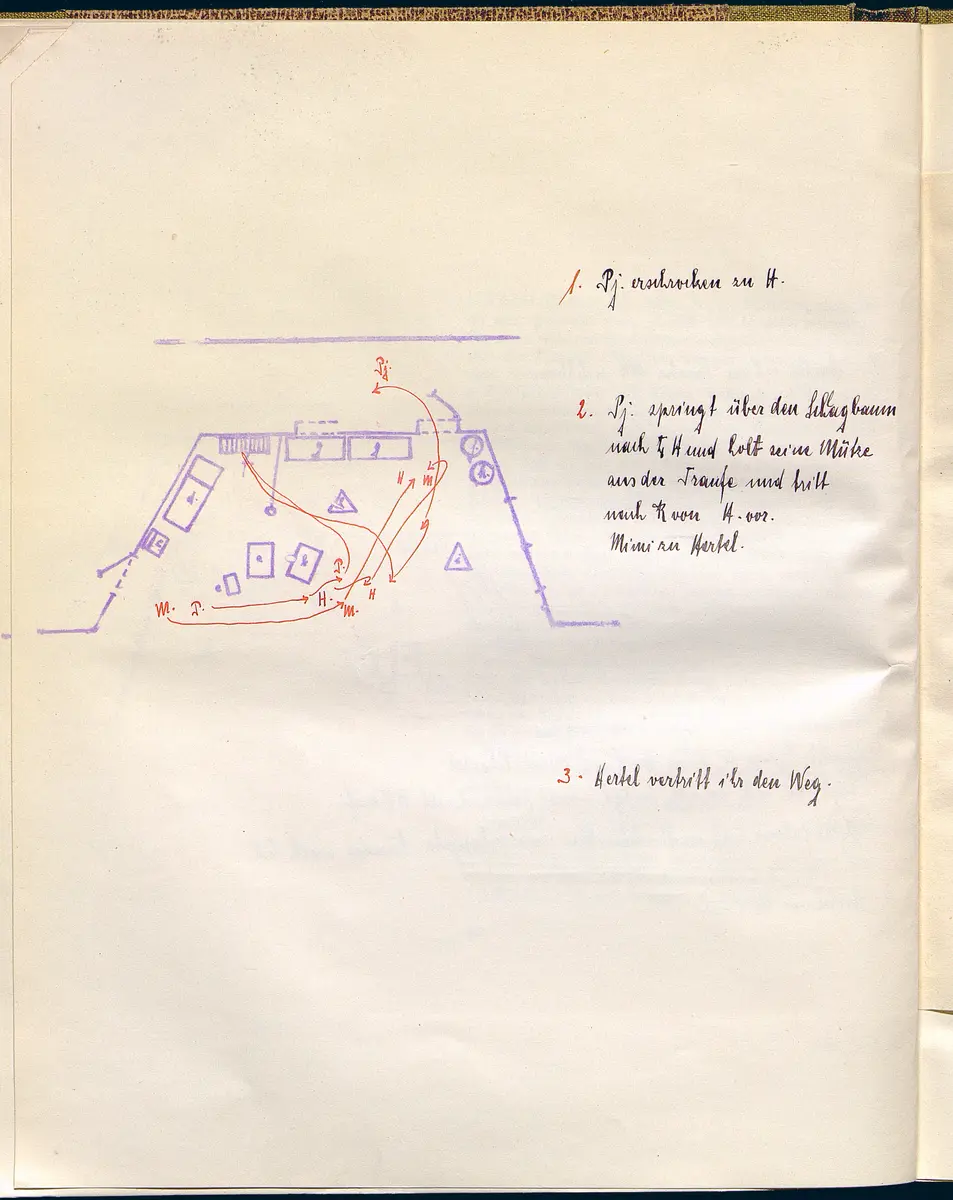 1. Pj. erschrocken zu H.
2. Pj. springt über den Schlagbaum
nach H und holt seine Mütze
aus der Traufe und tritt
nach R von H. vor.
Mimi zu Hertel.
3. Hertel vertritt ihr den Weg.
Pj.
H M.
P.
M. P. H. M. H